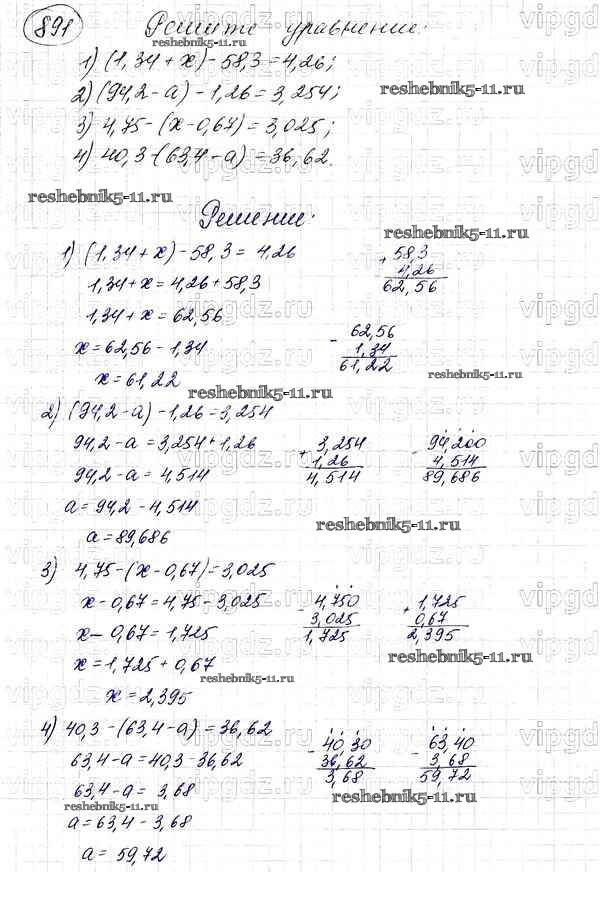 891 Решите уравнение:
reshebnik5-11.ru
1) (1,34 + x) - 58,3 = 4,26;
2) (94,2 - a) - 1,26 = 3,254; reshebnik5-11.ru
3) 4,75 - (x - 0,67) = 3,025;
4) 40,3 - (63,4 - a) = 36,62.
reshebnik5-11.ru
Решение:
reshebnik5-11.ru
1) (1,34 + x) - 58,3 = 4,26
+ 58,3
4,26
62,56
1,34 + x = 4,26 + 58,3
1,34 + x = 62,56
x = 62,56 - 1,34
x = 61,22
- 62,56
1,34
61,22
reshebnik5-11.ru
reshebnik5-11.ru
2) (94,2 - a) - 1,26 = 3,254
94,2 - a = 3,254 + 1,26
94,2 - a = 4,514
a = 94,2 - 4,514
a = 89,686
+ 3,254
1,26
4,514
- 94,200
4,514
89,686
reshebnik5-11.ru
3) 4,75 - (x - 0,67) = 3,025
x - 0,67 = 4,75 - 3,025
x - 0,67 = 1,725
x = 1,725 + 0,67
x = 2,395
- 4,750
3,025
1,725
+ 1,725
0,67
2,395
reshebnik5-11.ru
reshebnik5-11.ru
4) 40,3 - (63,4 - a) = 36,62
63,4 - a = 40,3 - 36,62
63,4 - a = 3,68
reshebnik5-11.ru
a = 63,4 - 3,68
a = 59,72
- 40,30
36,62
3,68
- 63,40
3,68
59,72
reshebnik5-11.ru
vipgdz.ru